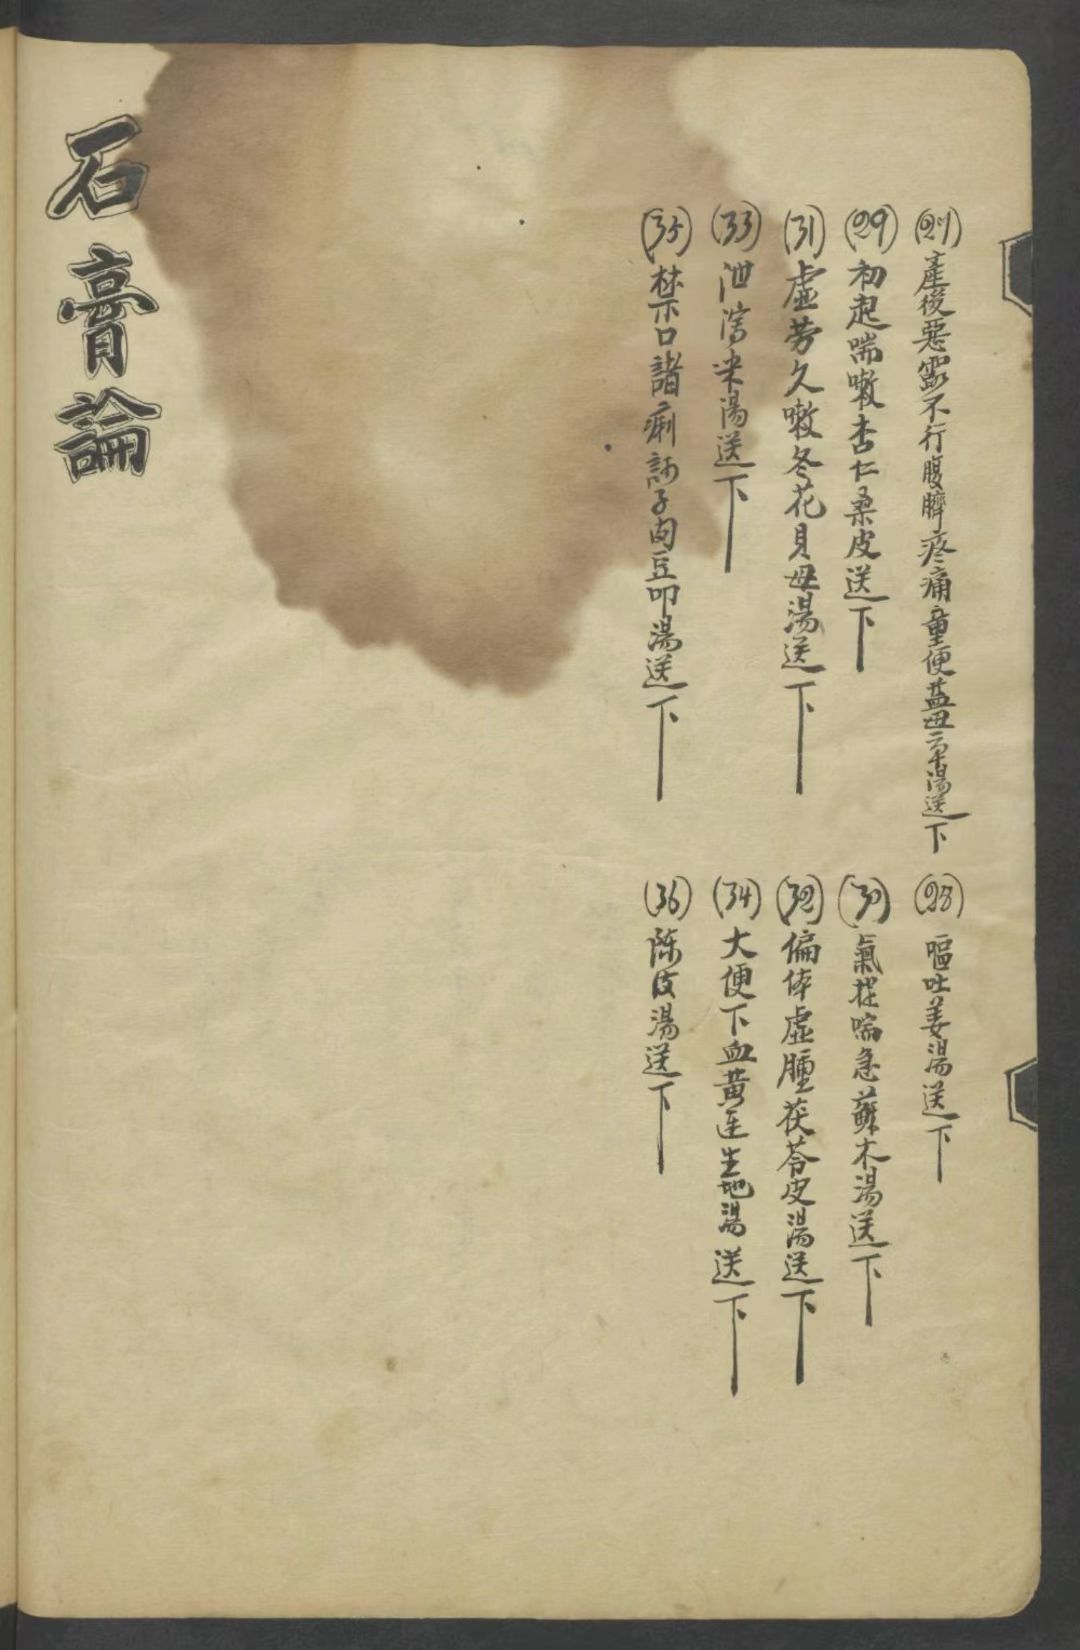 (27)產後惡露不行腹臍疼痛童便益母草湯送下
(28)嘔吐姜湯送下
(29)初起喘嗽杏仁桑皮送下
(30)氣提喘急蘇木湯送下
(31)虛劳久嗽冬花貝母湯送下
(32)偏体虛腫茯苓皮湯送下
(33)泄瀉米湯送下
(34)大便下血黄連生地湯送下
(35)禁口諸痢訶子肉豆叩湯送下
(36)陈皮湯送下
石膏論